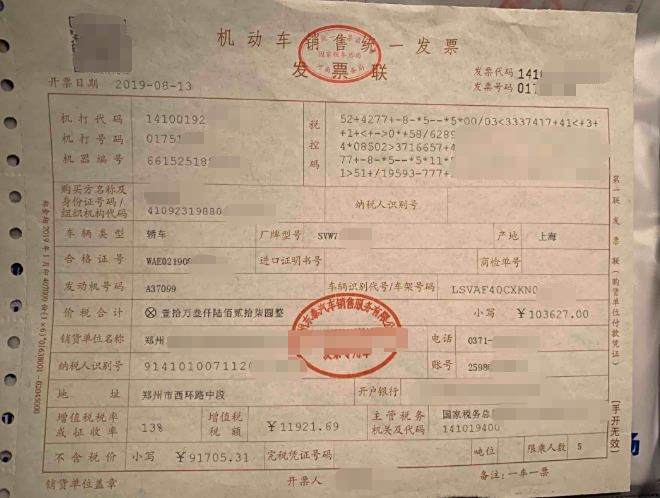 机动车销售统一发票
发票联
开票日期 2019-08-13
发票代码 141
发票号码 017
机打代码 14100192
机打号码 0175
机器编号 661525188
税控码
52+4277+-8-*5--*5*00/03<3337417+41<+3+
+1+<+->0*+58/6289
4*08502>3716657+4
77+-8-*5--*5*11*5
1>51+/19593-777+
购买方名称及
身份证号码/
组织机构代码
41092319880
纳税人识别号
车辆类型 轿车 厂牌型号 SVW7 产地 上海
合格证号 WAE021909 进口证明书号 商检单号
发动机号码 A37099 车辆识别代号/车架号码 LSVAF40CXKN0
价税合计 ⊗壹拾万叁仟陆佰贰拾柒圆整 小写 ￥103627.00
销货单位名称 郑州 电话 0371-
纳税人识别号 914101007112 账号 2598
地址 郑州市西环路中段 开户银行
增值税税率
或征收率
13%
增值税
税额
￥11921.69
主管税务
机关及代码
国家税务总
141019400
不含税价 小写 ￥91705.31 完税凭证号码 吨位 限乘人数 5
销货单位盖章 开票人 备注:一车一票
第一联 发票联(购货单位付款凭证)
(手开无效)
国家税务总局
东泰汽车销售服务有限公司